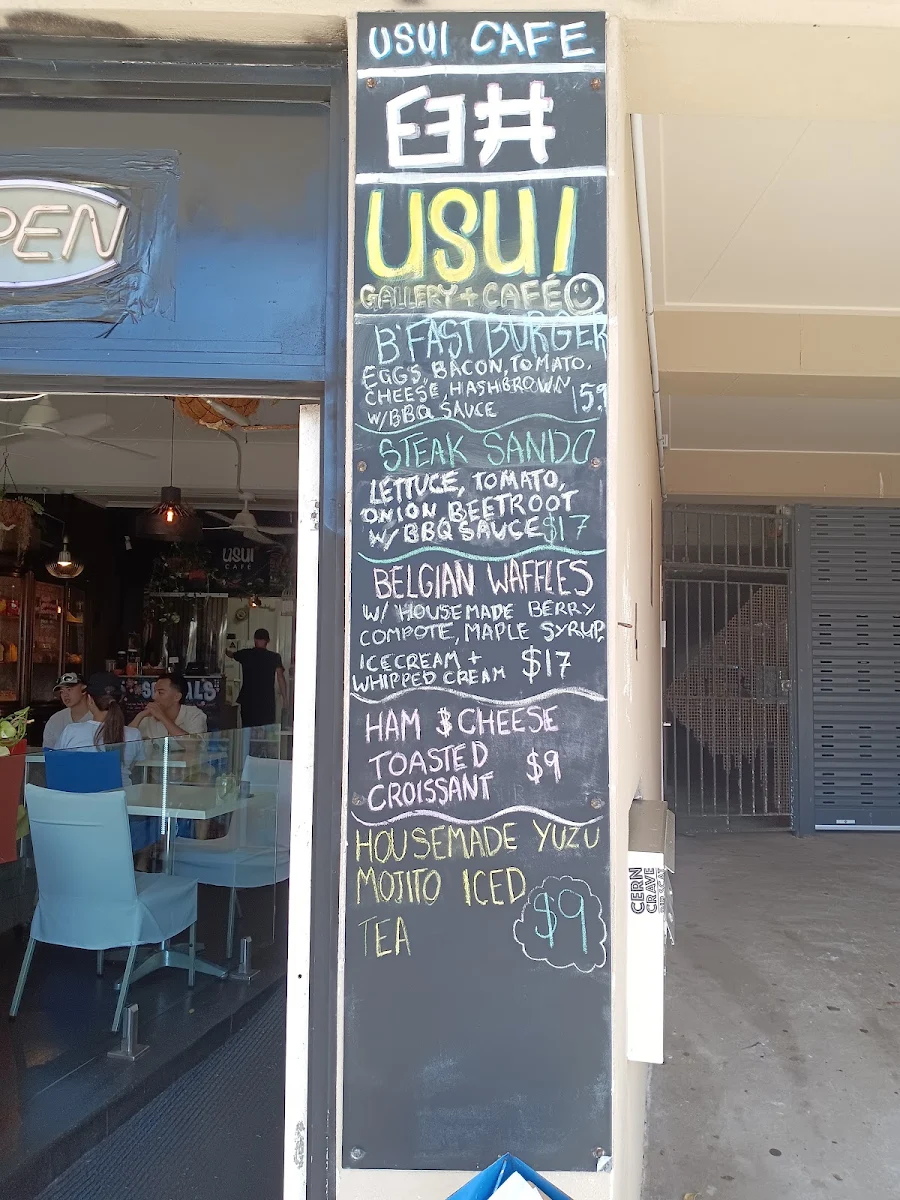 USUI CAFE
臼井
USUI
GALLERY + CAFÉ
B'FAST BURGER
EGGS, BACON, TOMATO,
CHEESE, HASHBROWN
W/BBQ SAUCE 15.9
STEAK SANDO
LETTUCE, TOMATO,
ONION BEETROOT
W/ BBQ SAUCE $17
BELGIAN WAFFLES
W/ HOUSEMADE BERRY
COMPOTE, MAPLE SYRUP,
ICECREAM +
WHIPPED CREAM $17
HAM & CHEESE
TOASTED
CROISSANT $9
HOUSEMADE YUZU
MOJITO ICED
TEA $9
PEN
USUI
CAFE
CERN
CRAVE